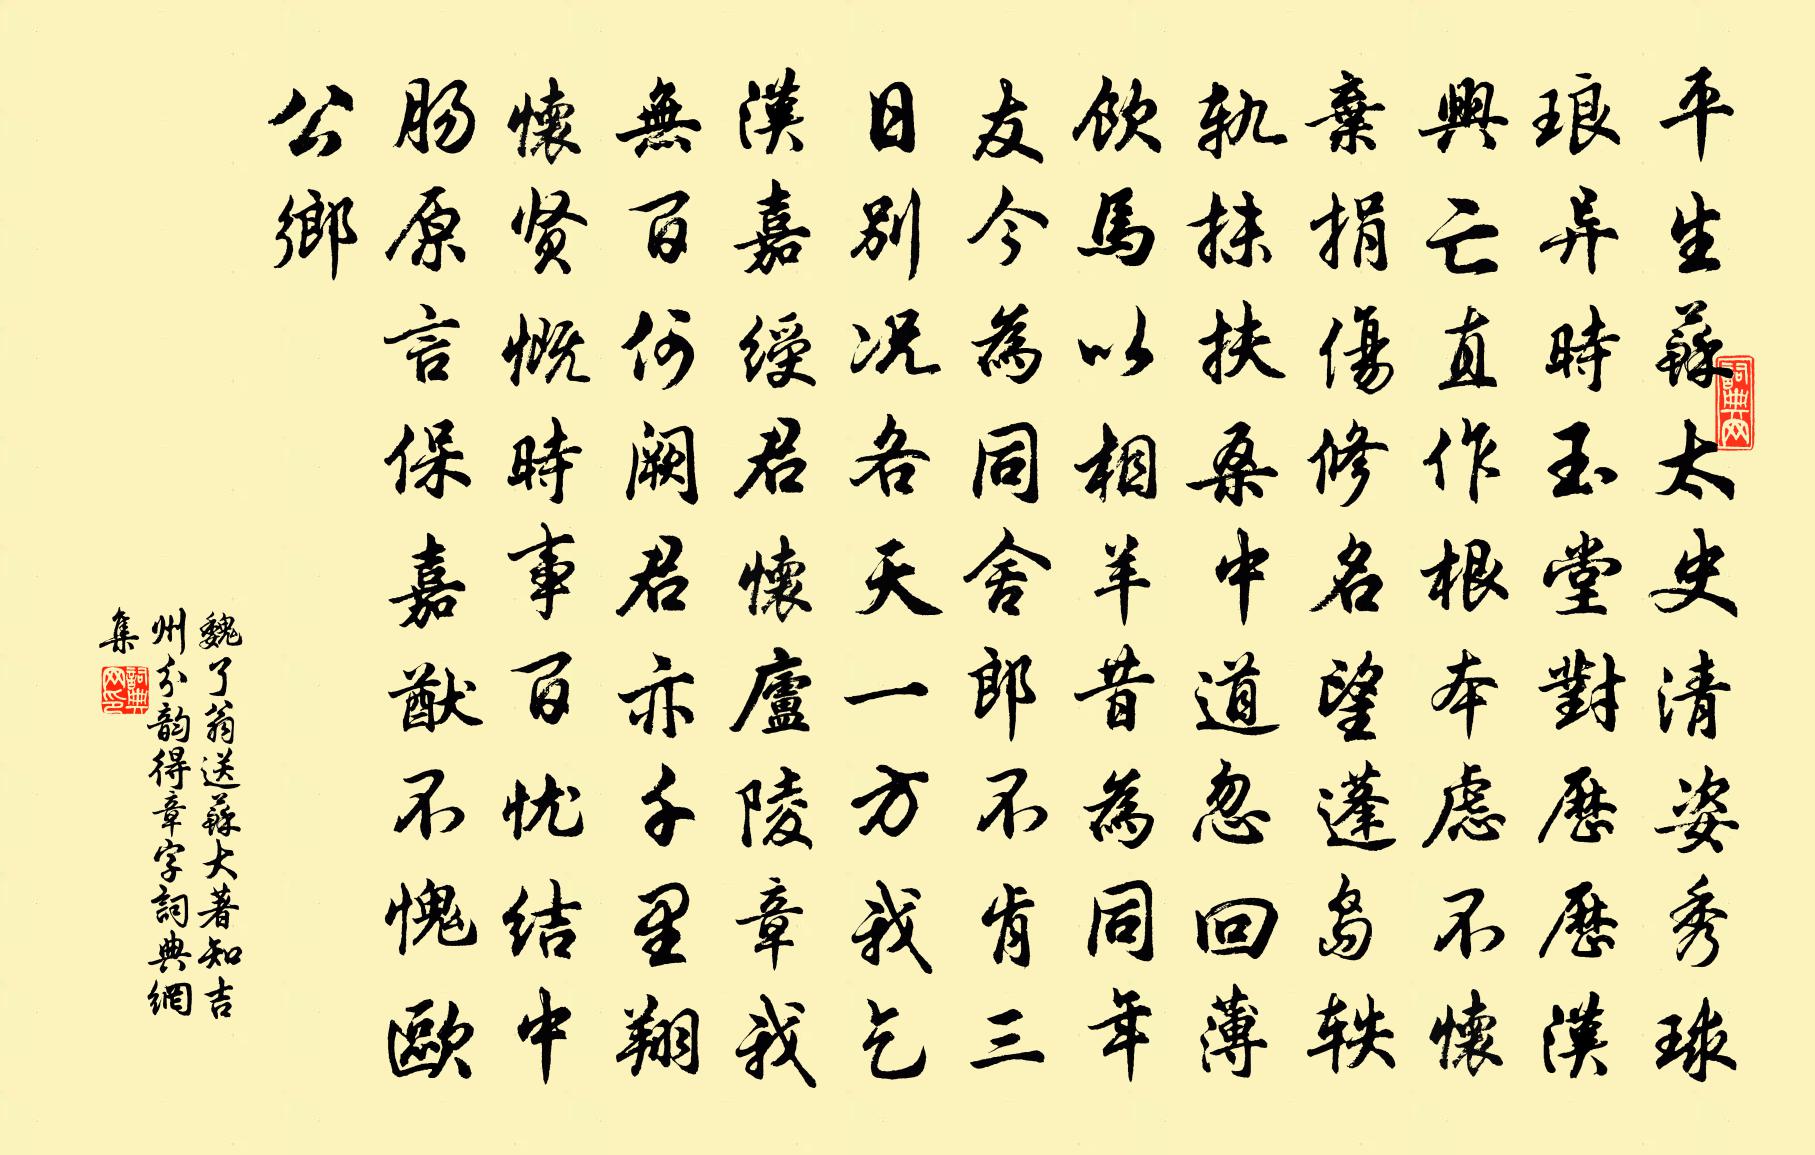 平生蘇太史清姿秀球
琅异時玉堂對歷歷漢
興亡直作根本慮不懷
棄捐傷修名望蓬島軼
軌抹扶桑中道忽回薄
飲馬以相羊昔為同年
友今為同舍郎不肯三
日別況各天一方我乞
漢嘉綬君懷廬陵章我
無百何闕君亦千里翔
懷贤慨時事百忧结中
肠原言保嘉猷不愧歐
公鄉
詞典网
魏了翁送蘇大著知吉
州分韵得章字詞典網
集
詞典网印